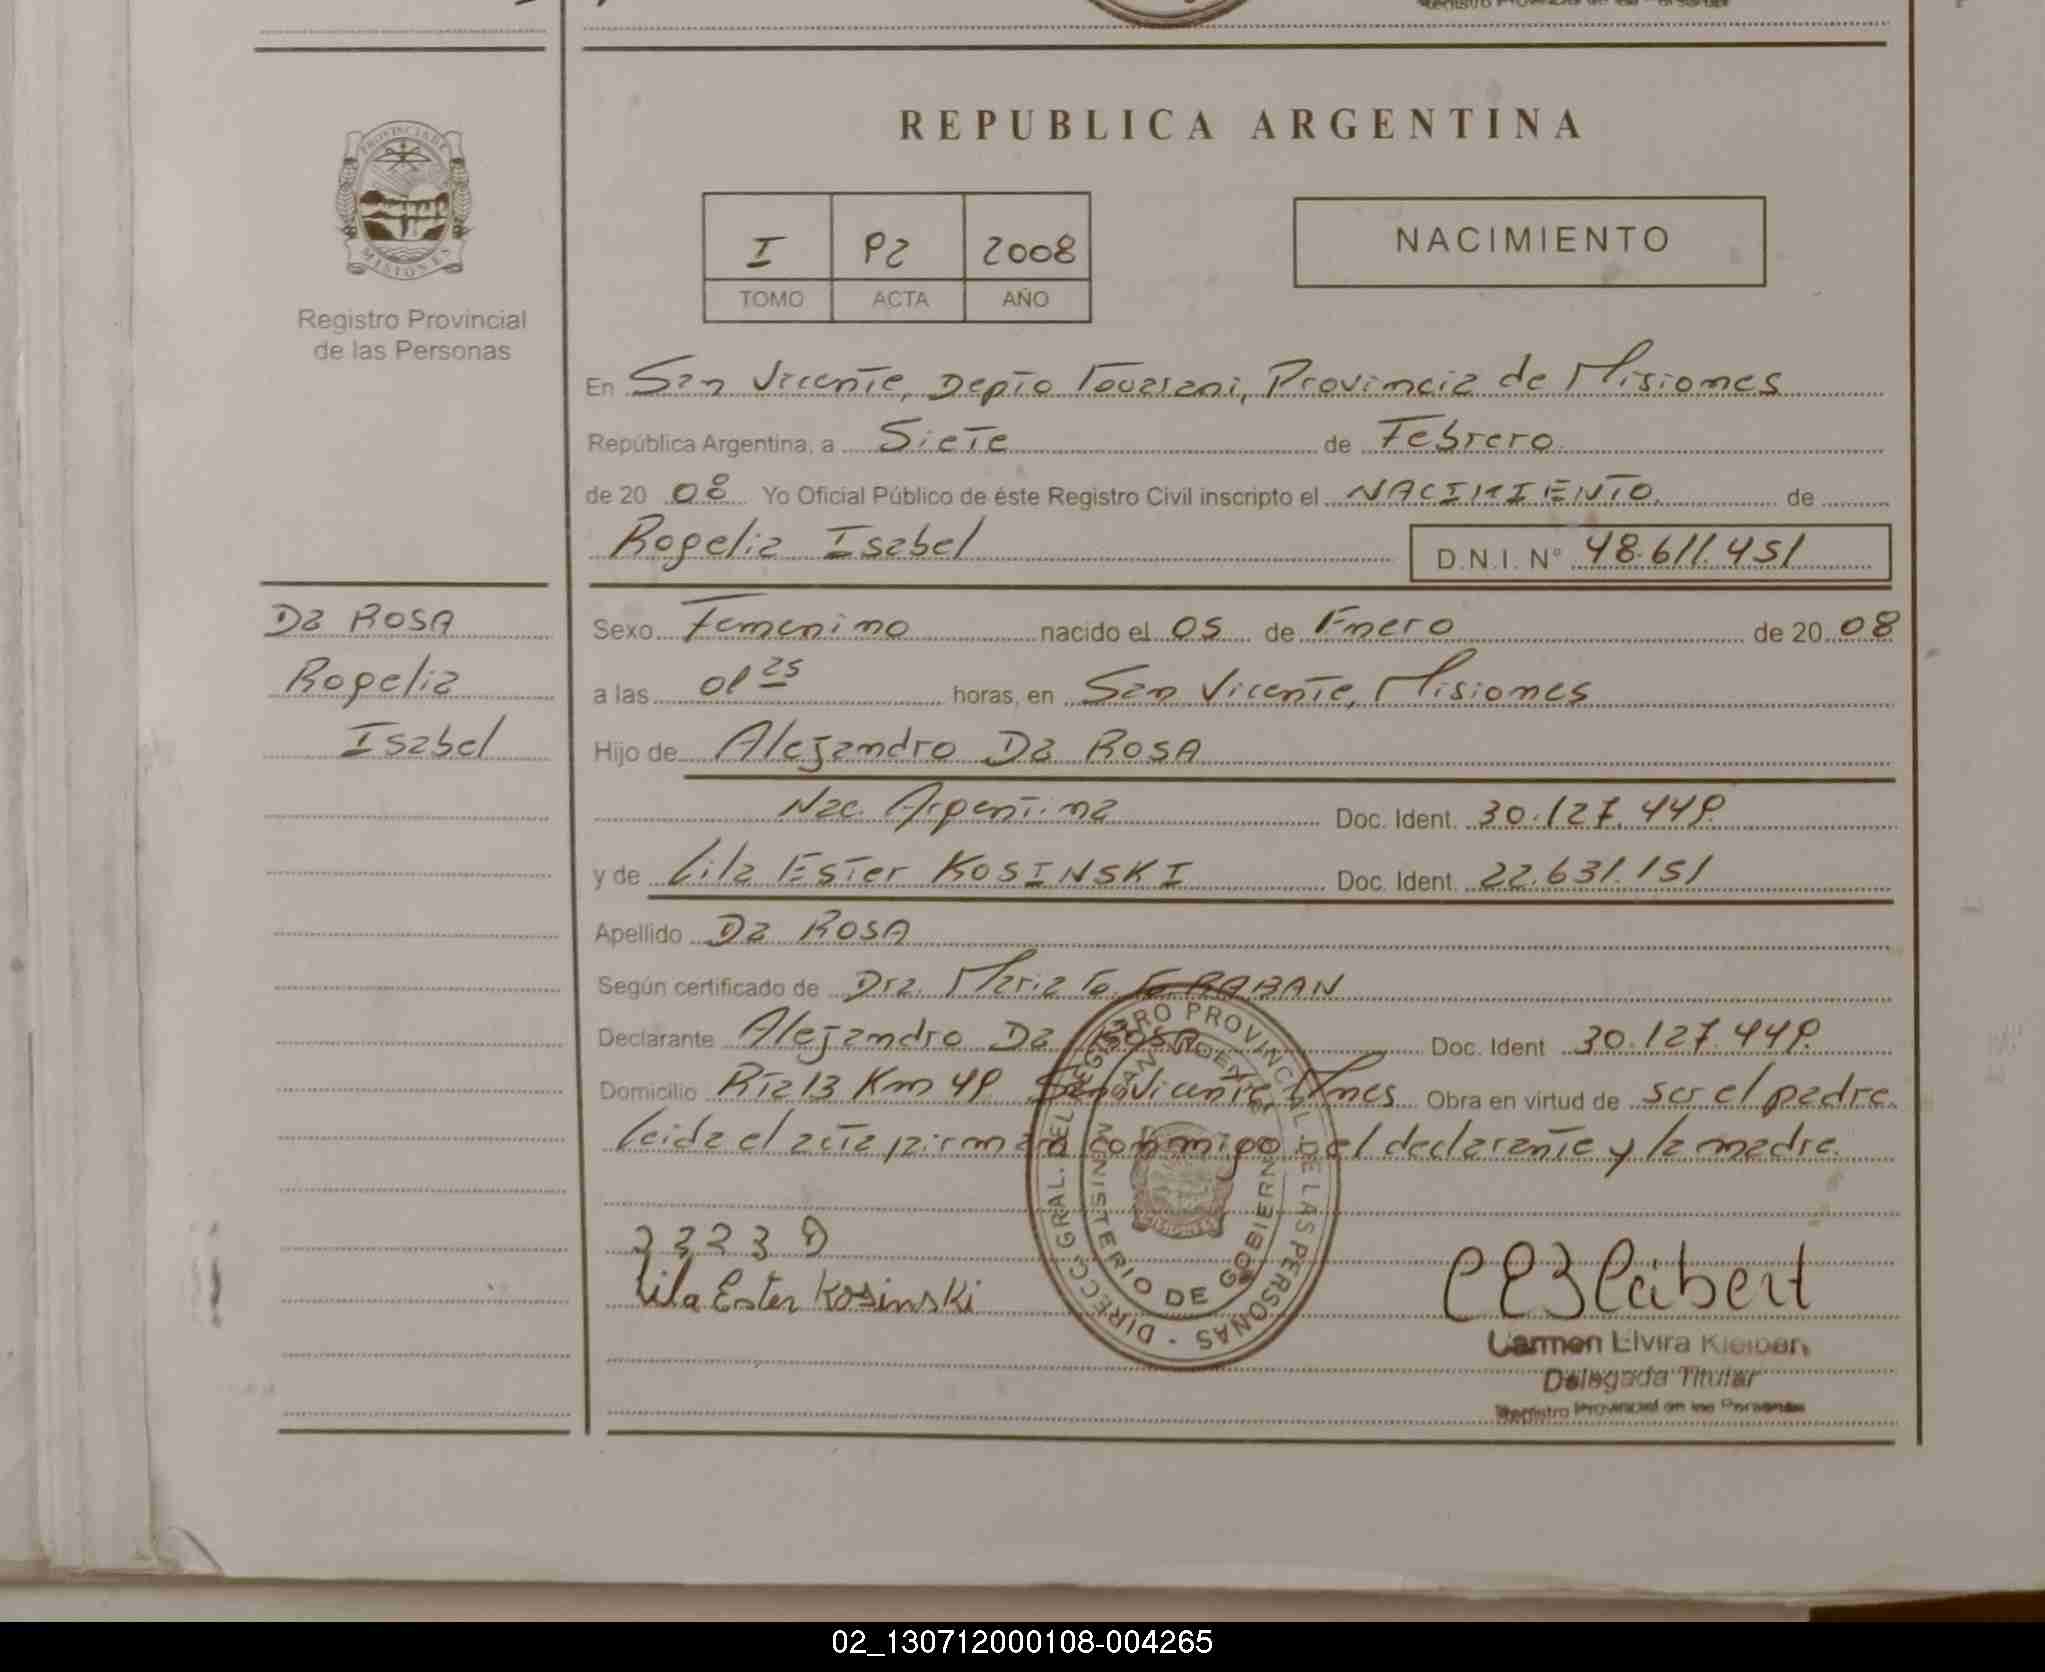 REPUBLICA ARGENTINA
PROVINCIA DE
MISIONES
Registro Provincial
de las Personas
I 92 2008
TOMO ACTA AÑO
NACIMIENTO
En San Vicente, Depto Guarani, Provincia de Misiones
República Argentina, a Siete de Febrero
de 2008 Yo Oficial Público de éste Registro Civil inscripto el NACIMIENTO de
Rogelia Isabel D.N.I. N° 48.611.451
Da ROSA
Rogelia
Isabel
Sexo Femenino nacido el 05 de Enero de 2008
a las 01 25 horas, en San Vicente, Misiones
Hijo de Alejandro Da ROSA
Nac. Argentina Doc. Ident. 30.127.449
y de Lila Ester KOSINSKI Doc. Ident. 22.631.151
Apellido Da ROSA
Según certificado de Dra. Maria G. GRABAN
Declarante Alejandro Da ROSA Doc. Ident 30.127.449
Domicilio Rta 13 Km 49 San Vicente, Mnes Obra en virtud de ser el padre.
Leida el acta firman conmigo el declarante y la madre.
DIRECC. GRAL. DEL REGISTRO PROVINCIAL DE LAS PERSONAS -
MINISTERIO DE GOBIERNO
Lila Ester Kosinski
Carmen Elvira Kleiber
Delegada Titular
Registro Provincial de las Personas
02_130712000108-004265